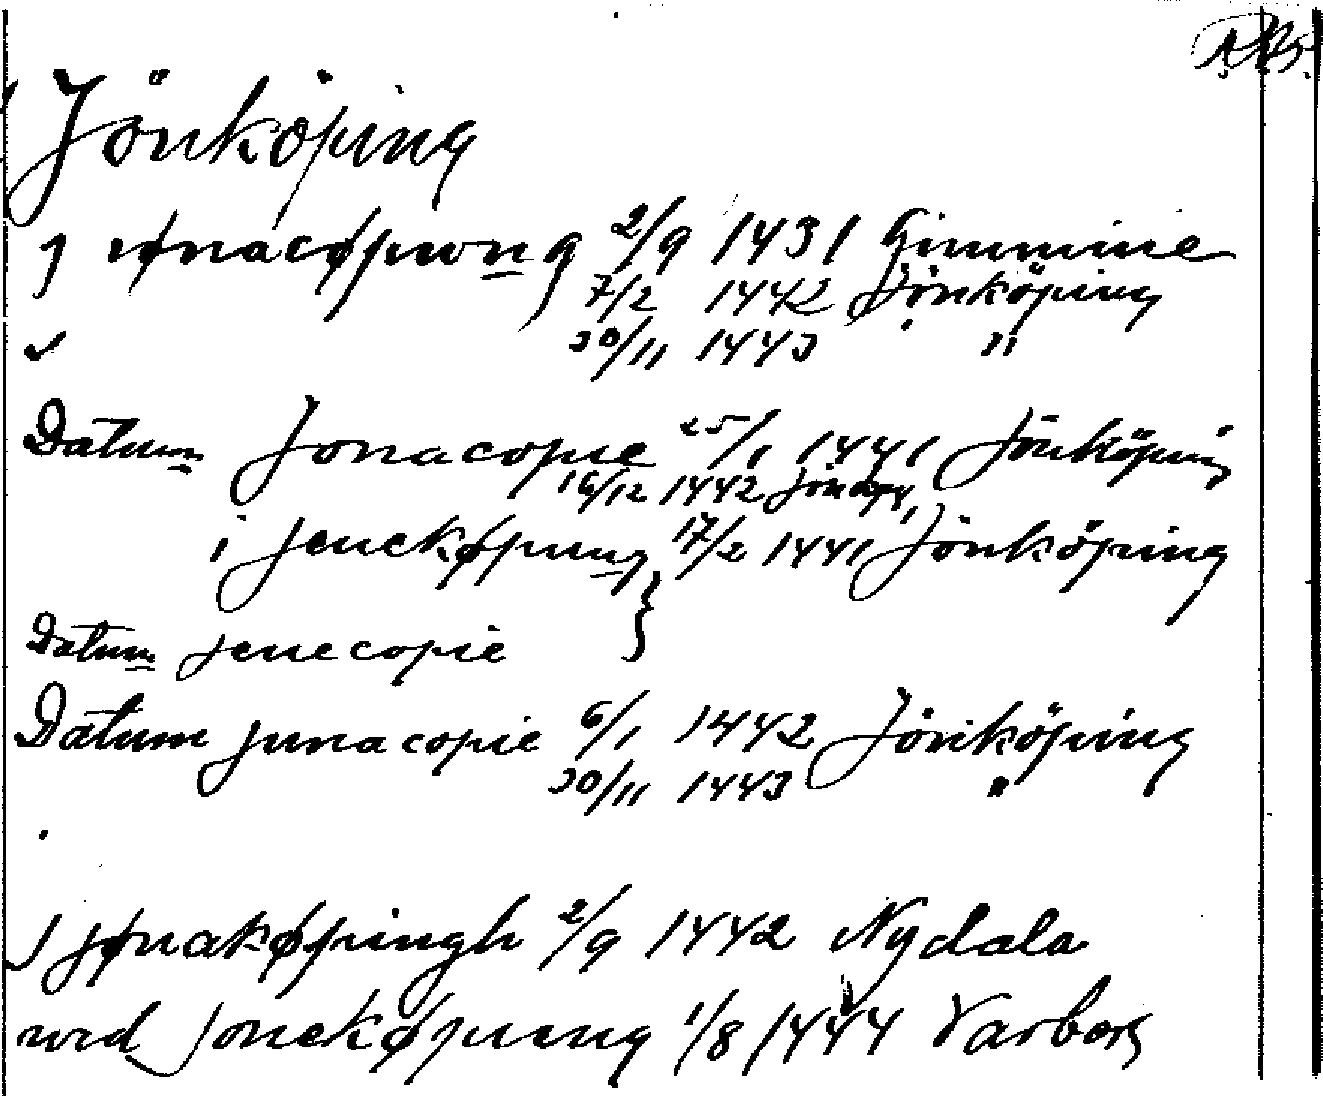 Jönköping
J iønacøpung 2/9 1431 Gimmine
7/2 1442 Jönköping
30/11 1443 "
Datum Jonacopie 25/1 1441 Jönköping
16/12 1442 Jönköp,
i jeneköpung 17/2 1441 Jönköping
Datum jenecopie
Datum junacopie 6/1 1442 Jönköping
30/11 1443 "
J jønakøpingh 2/9 1442 Nydala
wid Jonekøpung 1/8 1444 Varberg